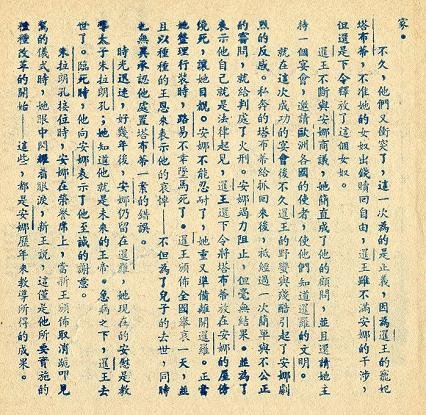 家。
不久，他們又衝突了，這一次為的是正義，因為暹王的寵妃
塔布蒂，不准她的女奴出錢贖回自由，暹王雖不滿安娜的干涉，
但還是下令釋放了這個女奴。
暹王不斷與安娜商議，她簡直成了他的顧問，並且還請她主
持一個宴會，邀請歐洲各國的使者，使他們知道暹羅的文明。
就在這次成功的宴會後不久暹王的野蠻與殘酷引起了安娜劇
烈的反感。私奔的塔布蒂給抓回來後，祇經過一次簡單與不公正
的審問，就給判處了火刑。安娜竭力阻止，但毫無結果。並為了
表示他自己就是法律起見，暹王還下令將塔布蒂放在安娜的屋傍
燒死，讓她目覩。安娜不能忍耐了，她重又準備離開暹羅。正當
她整理行裝時，路易不幸墜馬死了。暹王頒佈全國舉哀一天，並
且以種種的王恩來表示他的哀悼——不但為了兒子的去世，同時
也無異承認他處置塔布蒂一案的錯誤。
時光迅速，好幾年後，安娜仍留在暹羅，她現在的安慰是教
導太子朱拉朗孔；她知道他就是未來的王帝。急病之下，暹王去
世了。臨死時，他向安娜表示了他至誠的謝意。
朱拉朗孔接位時，安娜在榮譽席上，當新王頒佈取消跪叩見
駕的儀式時，她眼中閃耀着眼淚，新王說，這僅是他所要實施的
種種改革的開始——這些，都是安娜歷年來教導所得的成果。